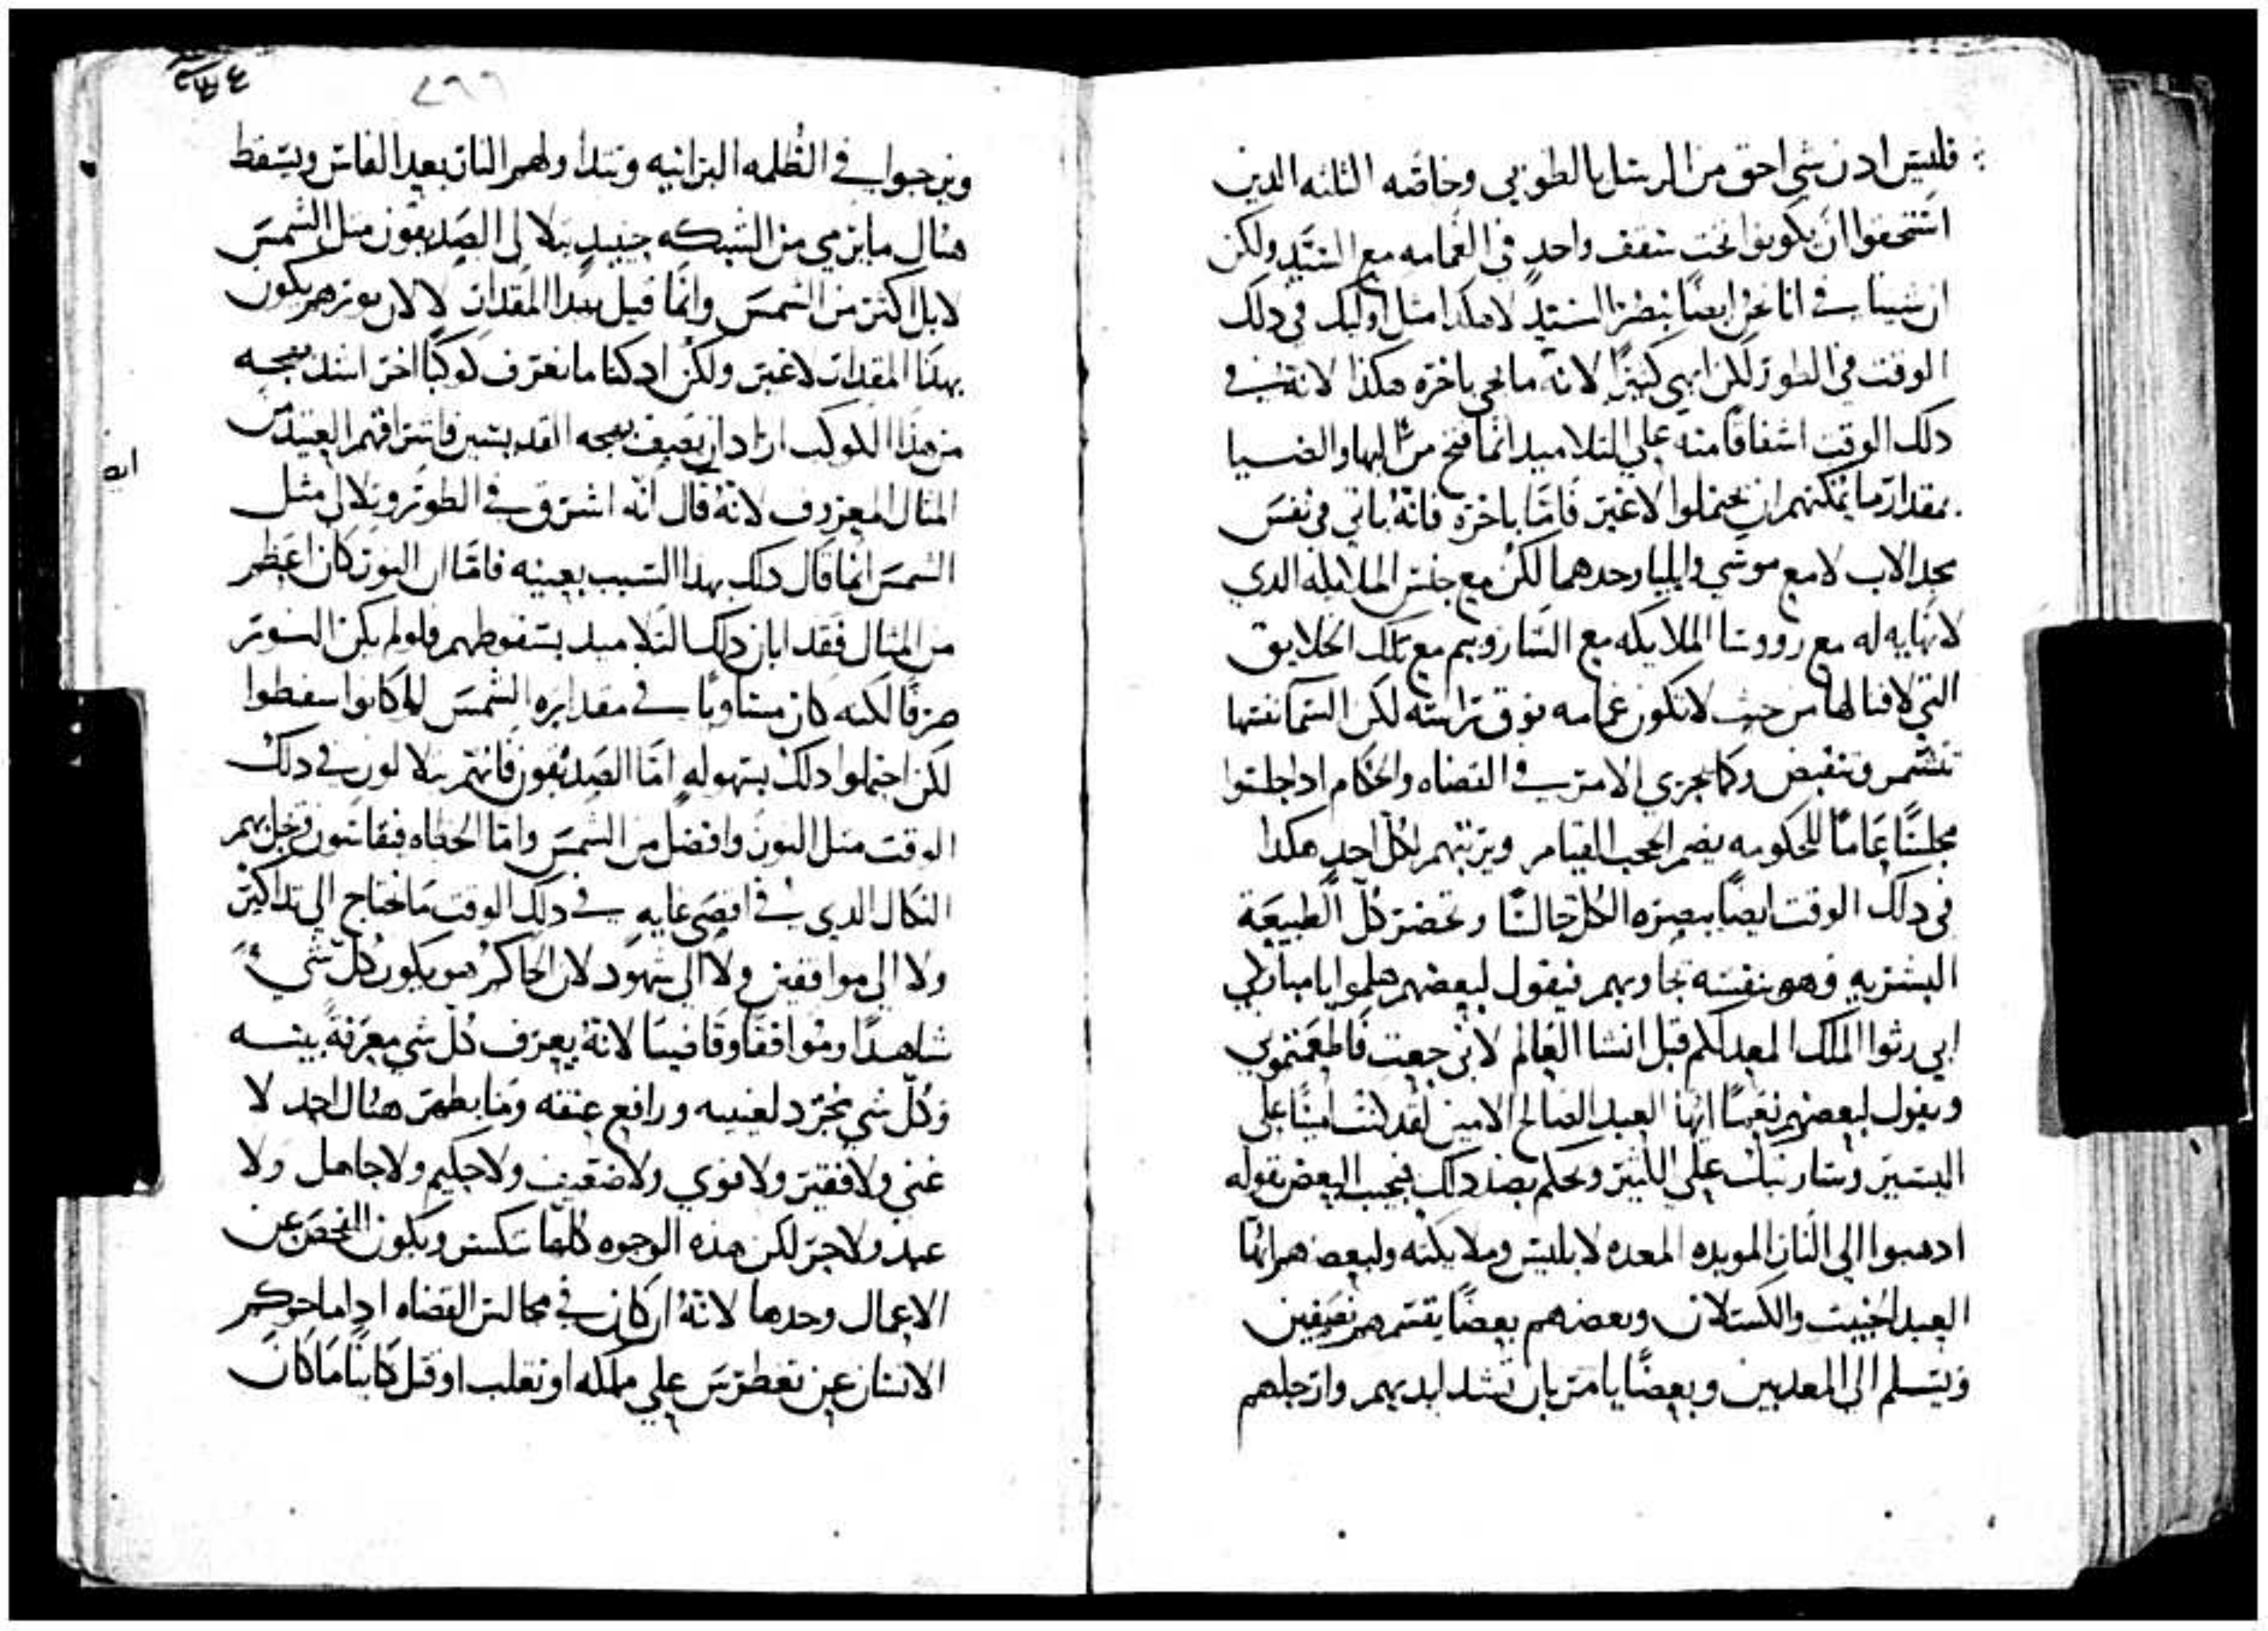 فليس ادن شي احق من الرسل بالطوبي وخاصه الثلثه الدين
استحقوا ان يكونوا تحت سقف واحد في الغمامه مع السيد ولكن
ان شينا فانا نحن ايضًا ننظر السيد لا هكدا مثل اوليك في دلك
الوقت في الطور لكن ابهي كثيرًا لانه ما يجي باخره هكذا لانه في
دلك الوقت اشفاقًا منه علي التلاميد انما فتح من البها والضيا
بمقدار ما يمكنهم ان يحتملوا لا غير فامّا باخره فانه ياتي في نفس
مجد الاب لا مع موسي وايليا وحدهما لكن مع جنس الملايكه الدي
لا نهايه له مع رووسا الملايكه مع الشاروبيم مع تلك الخلايق
التي لا فنا لها من حيث لا تكون غمامه فوق راسه لكن السما نفسها
تتشمر وتنقبض وكما يجري الامر في القضاه والحكام ادا جلسوا
مجلسًا عامًا للحكومه يضم الحجب القيام ويرتبهم لكل احد هكدا
في دلك الوقت ايضًا يبصره الكل جالسًا وتحضر كل الطبيعة
البشريه وهو بنفسه يجاوبهم فيقول لبعضهم هلموا يا مباركي
ابي رثوا الملك المعد لكم قبل انشا العالم لاني جعت فاطعمتموني
ويقول لبعضهم نعمًا ايها العبد الصالح الامين لقد كنت امينًا علي
اليسير وسارتبك علي الكثير ويحكم بضد دلك فيجيب البعض بقوله
ادهبوا الي النار الموبده المعده لابليس وملايكته ولبعضهم ايها
العبد الخبيت والكسلان وبعضهم بعضًا يقسمهم نصفين
ويسلم الي المعدبين وبعضًا يامر بان تشد ايديهم وارجلهم
٢٩٩
ويزجوا في الظلمه البرانيه وتبدا ولهم النار بعد الفاس ويسقط
هنال ما يرمي من الشبكه حينيدٍ يتلالي الصديقون مثل الشمس
لا بل اكثر من الشمس وانما قيل بهدا المقدار لا لان نورهم يكون
بهدا المقدار لا غير ولكن اد كنا ما نعرف كوكبًا اخر اشد بهجه
من هذا الكوكب اراد ان يصف بهجه القديسين فاشراقهم العتيد من
المثال المعروف لانه قال انه اشرق في الطور وتلالي مثل
الشمس انما قال دلك بهدا السبب بعينه فامّا ان النور كان اعظم
من المثال فقد ابان دلك التلاميد بسقوطهم فلو لم يكن النور
صرفًا لكنه كان مساويًا في مقداره الشمس لما كانوا سقطوا
لكن احتملوا دلك بسهوله امّا الصديقون فانهم يتلالون في دلك
الوقت مثل النور وافضل من الشمس وامّا الخطاه فيقاسون
النكال الدي في اقصي غايه في دلك الوقت ما نحتاج الي تداكير
ولا الي موافقين ولا الي شهود لان الحاكم هو يكون كل شي
شاهدًا وموافقًا وقاضيًا لانه يعرف كل شي معرفةً بينه
وكل شي مجرد لعينيه ورافع عنقه وما يظهر هنال احد لا
غني ولا فقير ولا قوي ولا ضعيف ولا حكيم ولا جاهل ولا
عبد ولا حر لكن هذه الوجوه كلها تنكسر ويكون الفحص عن
الاعمال وحدها لانه ان كان في مجالس القضاه ادا ما حوكم
الانسان عن تغطرس علي مملكه او تغلب او قتل كاينًا ما كان